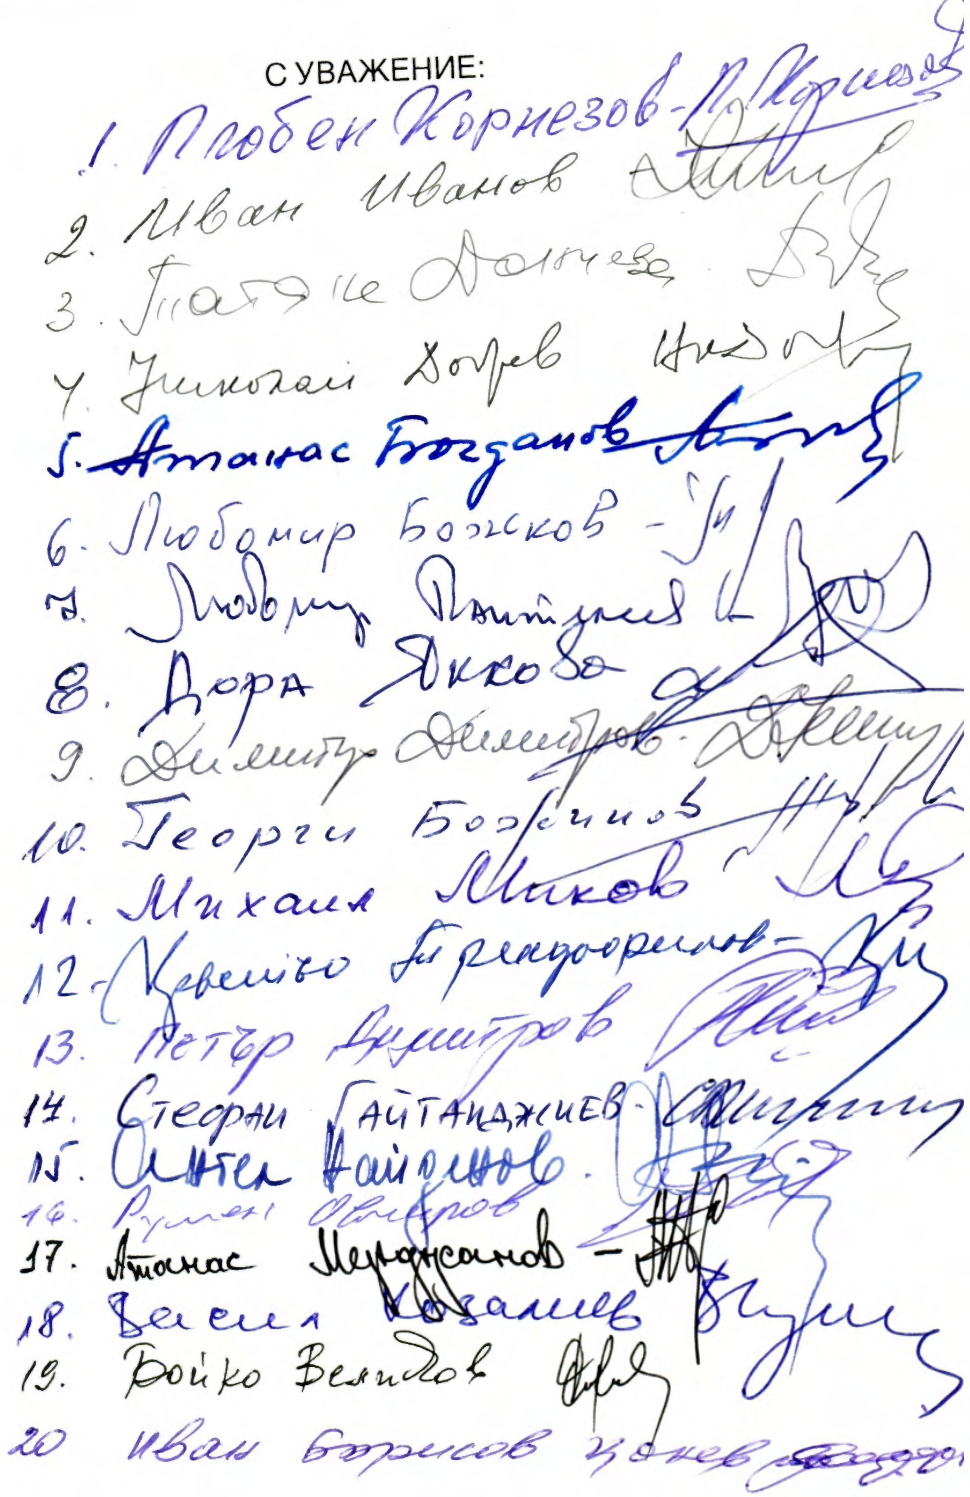 С УВАЖЕНИЕ:
1. Любен Корнезов - Л. Корнезов
2. Иван Иванов
3. Татяна Дончева
4. Николай Добрев
5. Атанас Богданов
6. Любомир Божков -
7. Любомир Пантилеев -
8. Дора Янкова
9. Димитър Димитров -
10. Георги Божинов
11. Михаил Миков
12. Цветелин -
13. Петър Димитров
14. Стефан Гайтанджиев -
15. Ангел Найденов.
16. Румен Овчаров
17. Атанас Мерджанов -
18. Васил
19. Бойко Великов
20 Иван Борисов Цонев